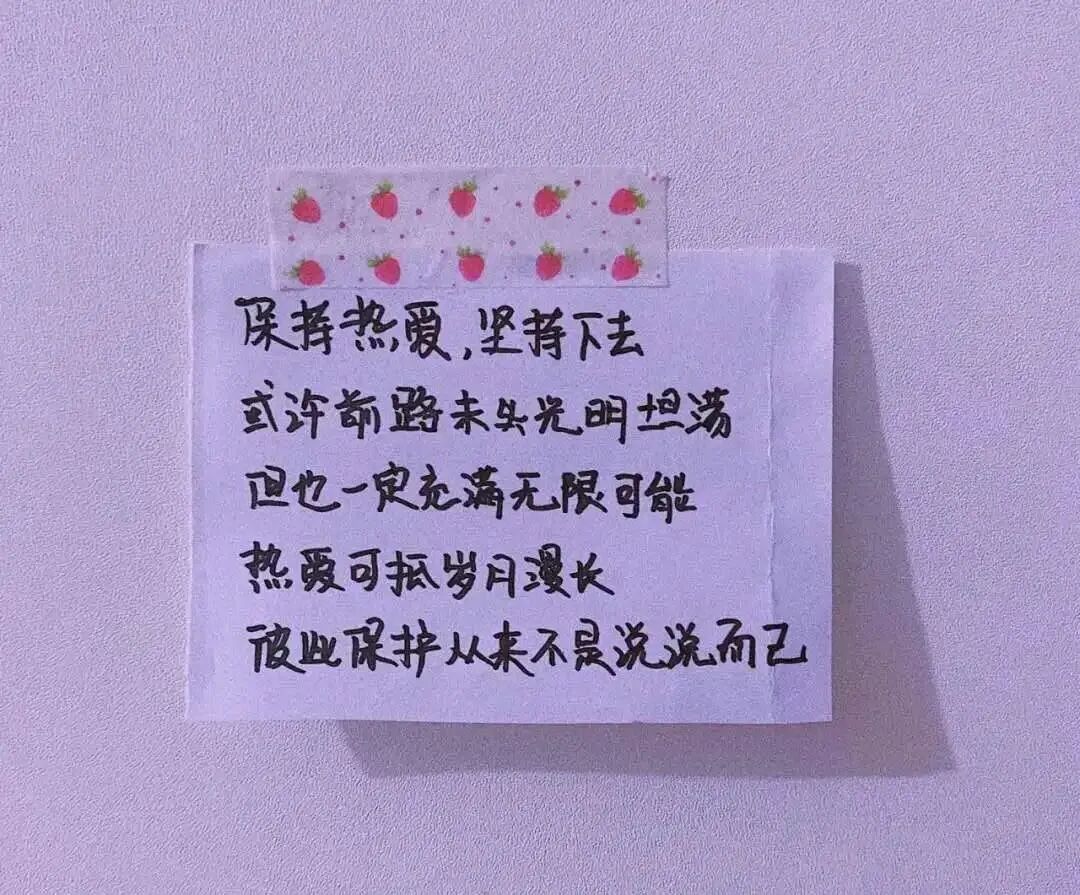 保持热爱,坚持下去
或许前路未必光明坦荡
但也一定充满无限可能
热爱可抵岁月漫长
彼此保护从来不是说说而已